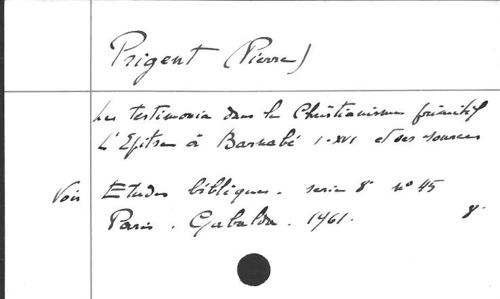 Prigent (Pierre)
Les testimonia dans le Christianisme primitif
L'Epitre à Barnabé I-XVI et ses sources
Voir Etudes bibliques. serie 8° n° 45
Paris. Gabalda. 1961. 8°